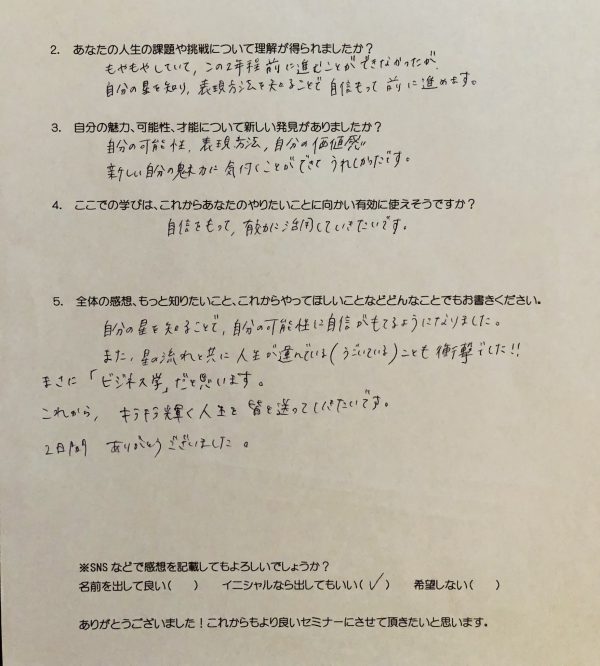 2. あなたの人生の課題や挑戦について理解が得られましたか？
もやもやしていて、この2年程前に進むことができなかったが、
自分の星を知り、表現方法を知ることで自信もって前に進めます。
3. 自分の魅力、可能性、才能について新しい発見がありましたか？
自分の可能性、表現方法、自分の価値感
新しい自分の魅力に気付くことができてうれしかったです。
4. ここでの学びは、これからあなたのやりたいことに向かい有効に使えそうですか？
自信をもって、有効に活用していきたいです。
5. 全体の感想、もっと知りたいこと、これからやってほしいことなどどんなことでもお書きください。
自分の星を知ることで、自分の可能性に自信がもてるようになりました。
また、星の流れと共に人生が運んでいる(うごいている)ことも衝撃でした!!
まさに「ビジネス学」だと思います。
これから、キラキラ輝く人生を皆を送っていきたいです。
2日間 ありがとうございました。
※SNSなどで感想を記載してもよろしいでしょうか？
名前を出して良い( ) イニシャルなら出してもいい(✓) 希望しない( )
ありがとうございました！これからもより良いセミナーにさせて頂きたいと思います。